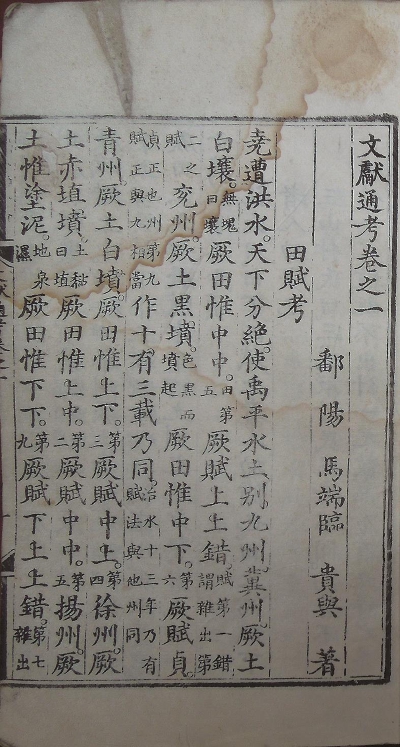 文獻通考卷之一
鄱陽 馬端臨 貴與 著
田賦考
堯遭洪水。天下分絕。使禹平水土。別九州。冀州。厥土
白壤。無塊曰壤厥田惟中中。田第五厥賦上上錯。賦第一錯謂雜出第
二之賦兖州。厥土黑墳。色黑而墳起厥田惟中下。第六厥賦貞。
貞正也州第九賦正與九相當作十有三載乃同。治水十三年乃有賦法與他州同
青州。厥土白墳。厥田惟上下。第三厥賦中上。第四徐州。厥
土赤埴墳。土黏曰埴厥田惟上中。第二厥賦中中。第五揚州。厥
土惟塗泥。地泉濕厥田惟下下。第九厥賦下上上錯。第七雜出